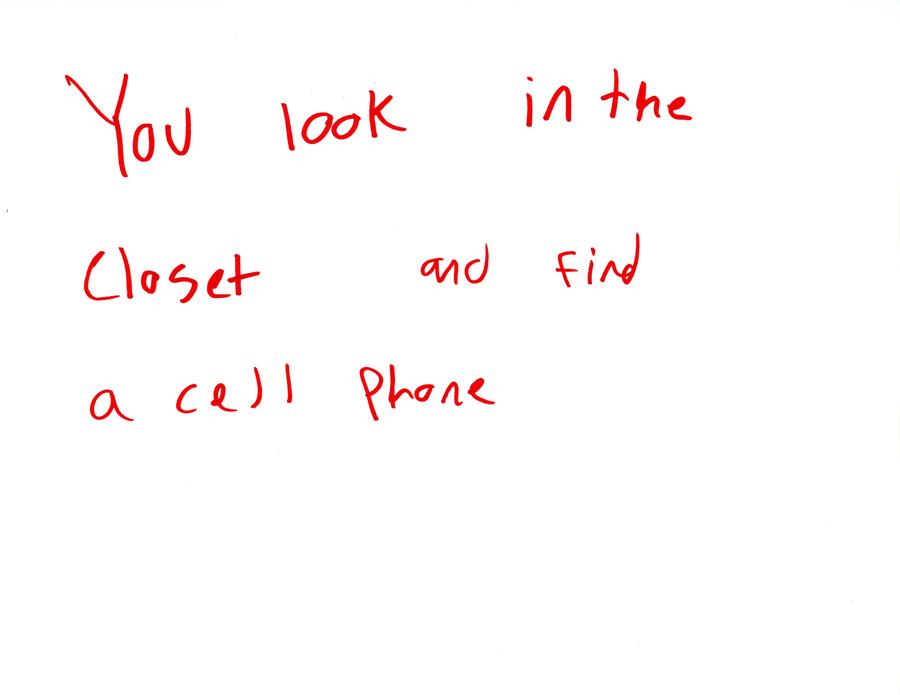 You look in the
Closet and find
a cell phone